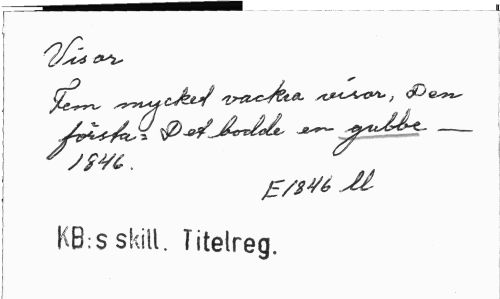 Visor
Fem mycket vackra visor, Den
första= Det bodde en gubbe —
1846.
E1846 ll
KB:s skill. Titelreg.